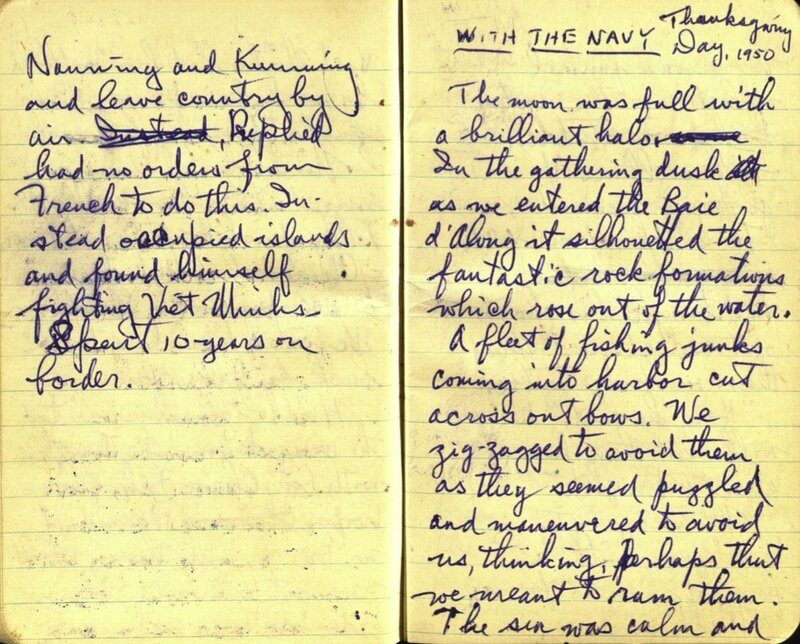 Nanning and Kunming
and leave country by
air. Instead, Replied
had no orders from
French to do this. In-
stead occupied islands
and found himself
fighting Viet Minhs.
Spent 10-years on
border.
WITH THE NAVY Thanksgiving
Day, 1950
The moon was full with
a brilliant halo.
In the gathering dusk
as we entered the Baie
d'Along it silhouetted the
fantastic rock formations
which rose out of the water.
A fleet of fishing junks
coming into harbor cut
across out bows. We
zig-zagged to avoid them
as they seemed puzzled
and maneuvered to avoid
us, thinking, perhaps that
we meant to ram them.
The sea was calm and